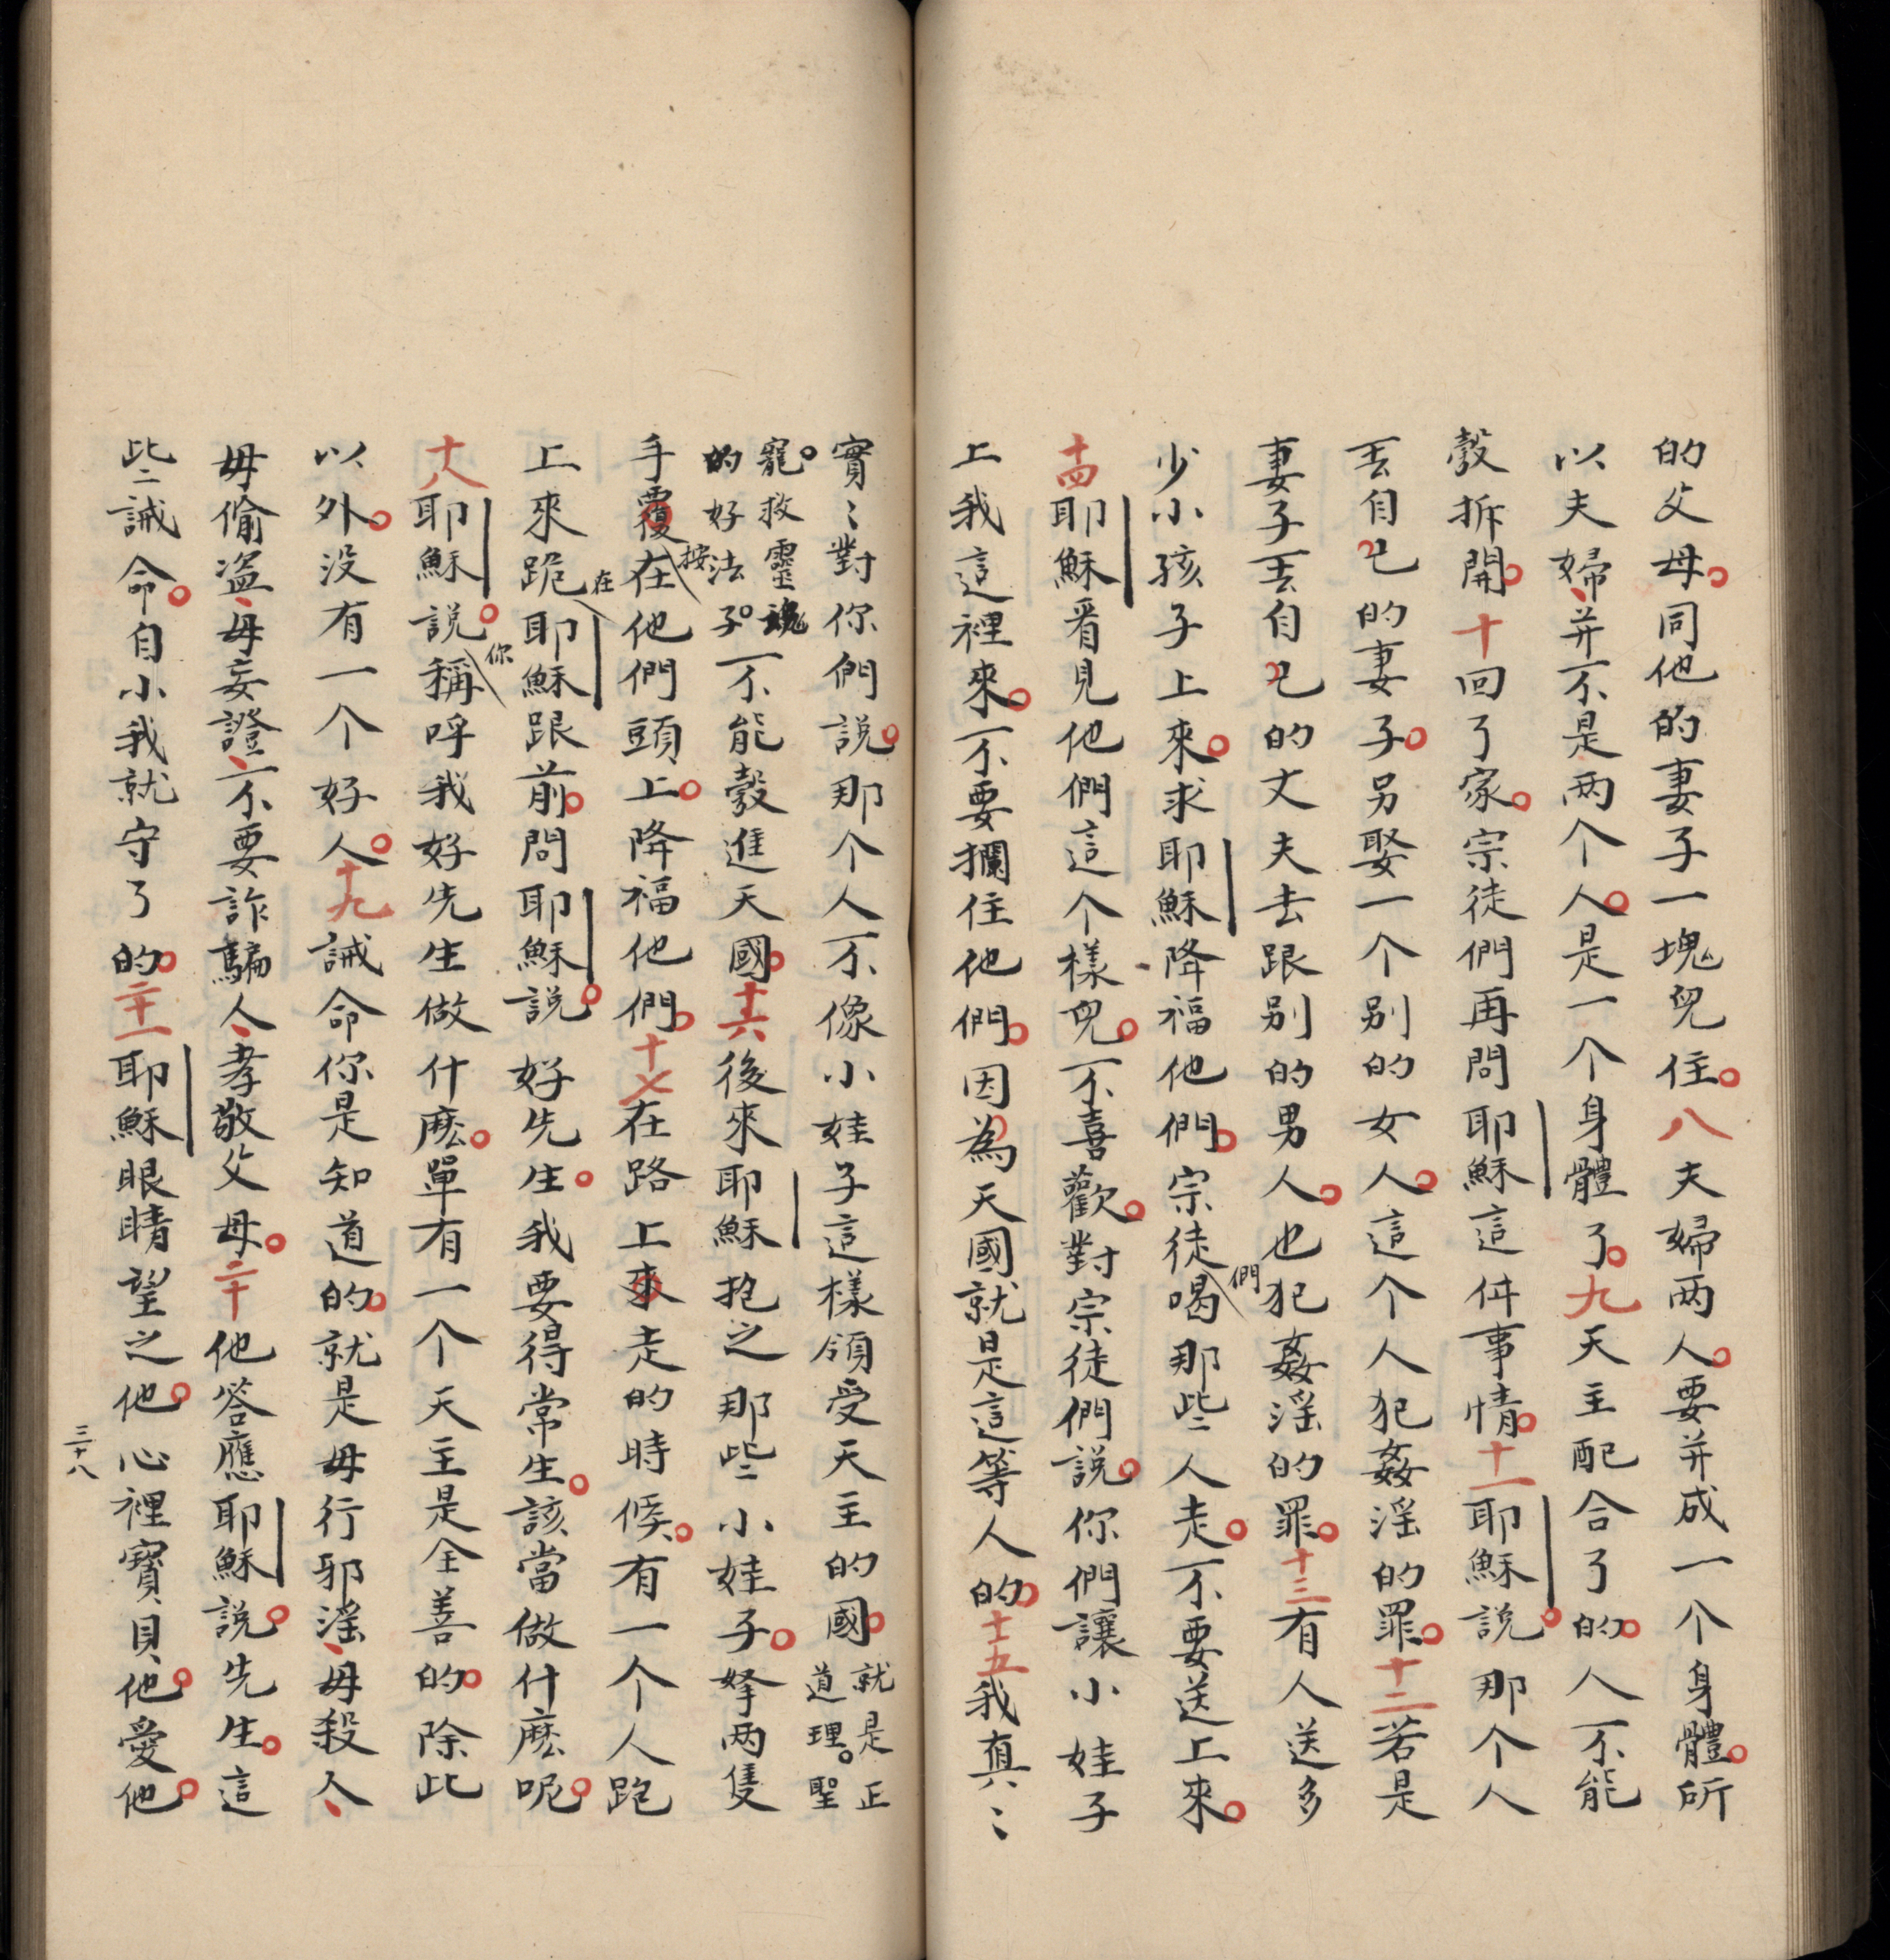 的父母。同他的妻子一塊兒住。八夫婦两人。要并成一个身體。所
以夫婦、并不是两个人。是一个身體了。九天主配合了的。人不能
彀拆開。十回了家。宗徒們再問耶穌這件事情。十一耶穌説。那个人
丟自己的妻子。另娶一个别的女人。這个人犯姦淫的罪。十二若是
妻子丟自己的丈夫去跟别的男人。也犯姦淫的罪。十三有人送多
少小孩子上來。求耶穌降福他們。宗徒們喝那些人走。不要送上來。
十四耶穌看見他們這个樣兒。不喜歡。對宗徒們説。你們讓小娃子
上我這裡來。不要攔住他們。因為天國就是這等人的。十五我真〻
實〻對你們説。那个人不像小娃子這樣領受天主的國。就是正道理。聖
寵。救靈魂的好法子。不能彀進天國。十六後來耶穌抱之那些小娃子。拏两隻
手覆按在他們頭上。降福他們。十七在路上來走的時候。有一个人跑
上來跪在耶穌跟前。問耶穌。説好先生。我要得常生。該當做什麽呢。
十八耶穌説。你稱呼我好先生做什麽。單有一个天主是全善的。除此
以外。没有一个好人。十九誡命你是知道的。就是毋行邪淫、毋殺人、
毋偷盗、毋妄證、不要詐騙人、孝敬父母。二十他答應耶穌説。先生。這
些誡命。自小我就守了的。二十一耶穌眼睛望之他。心裡寶貝他。愛他。
三十八